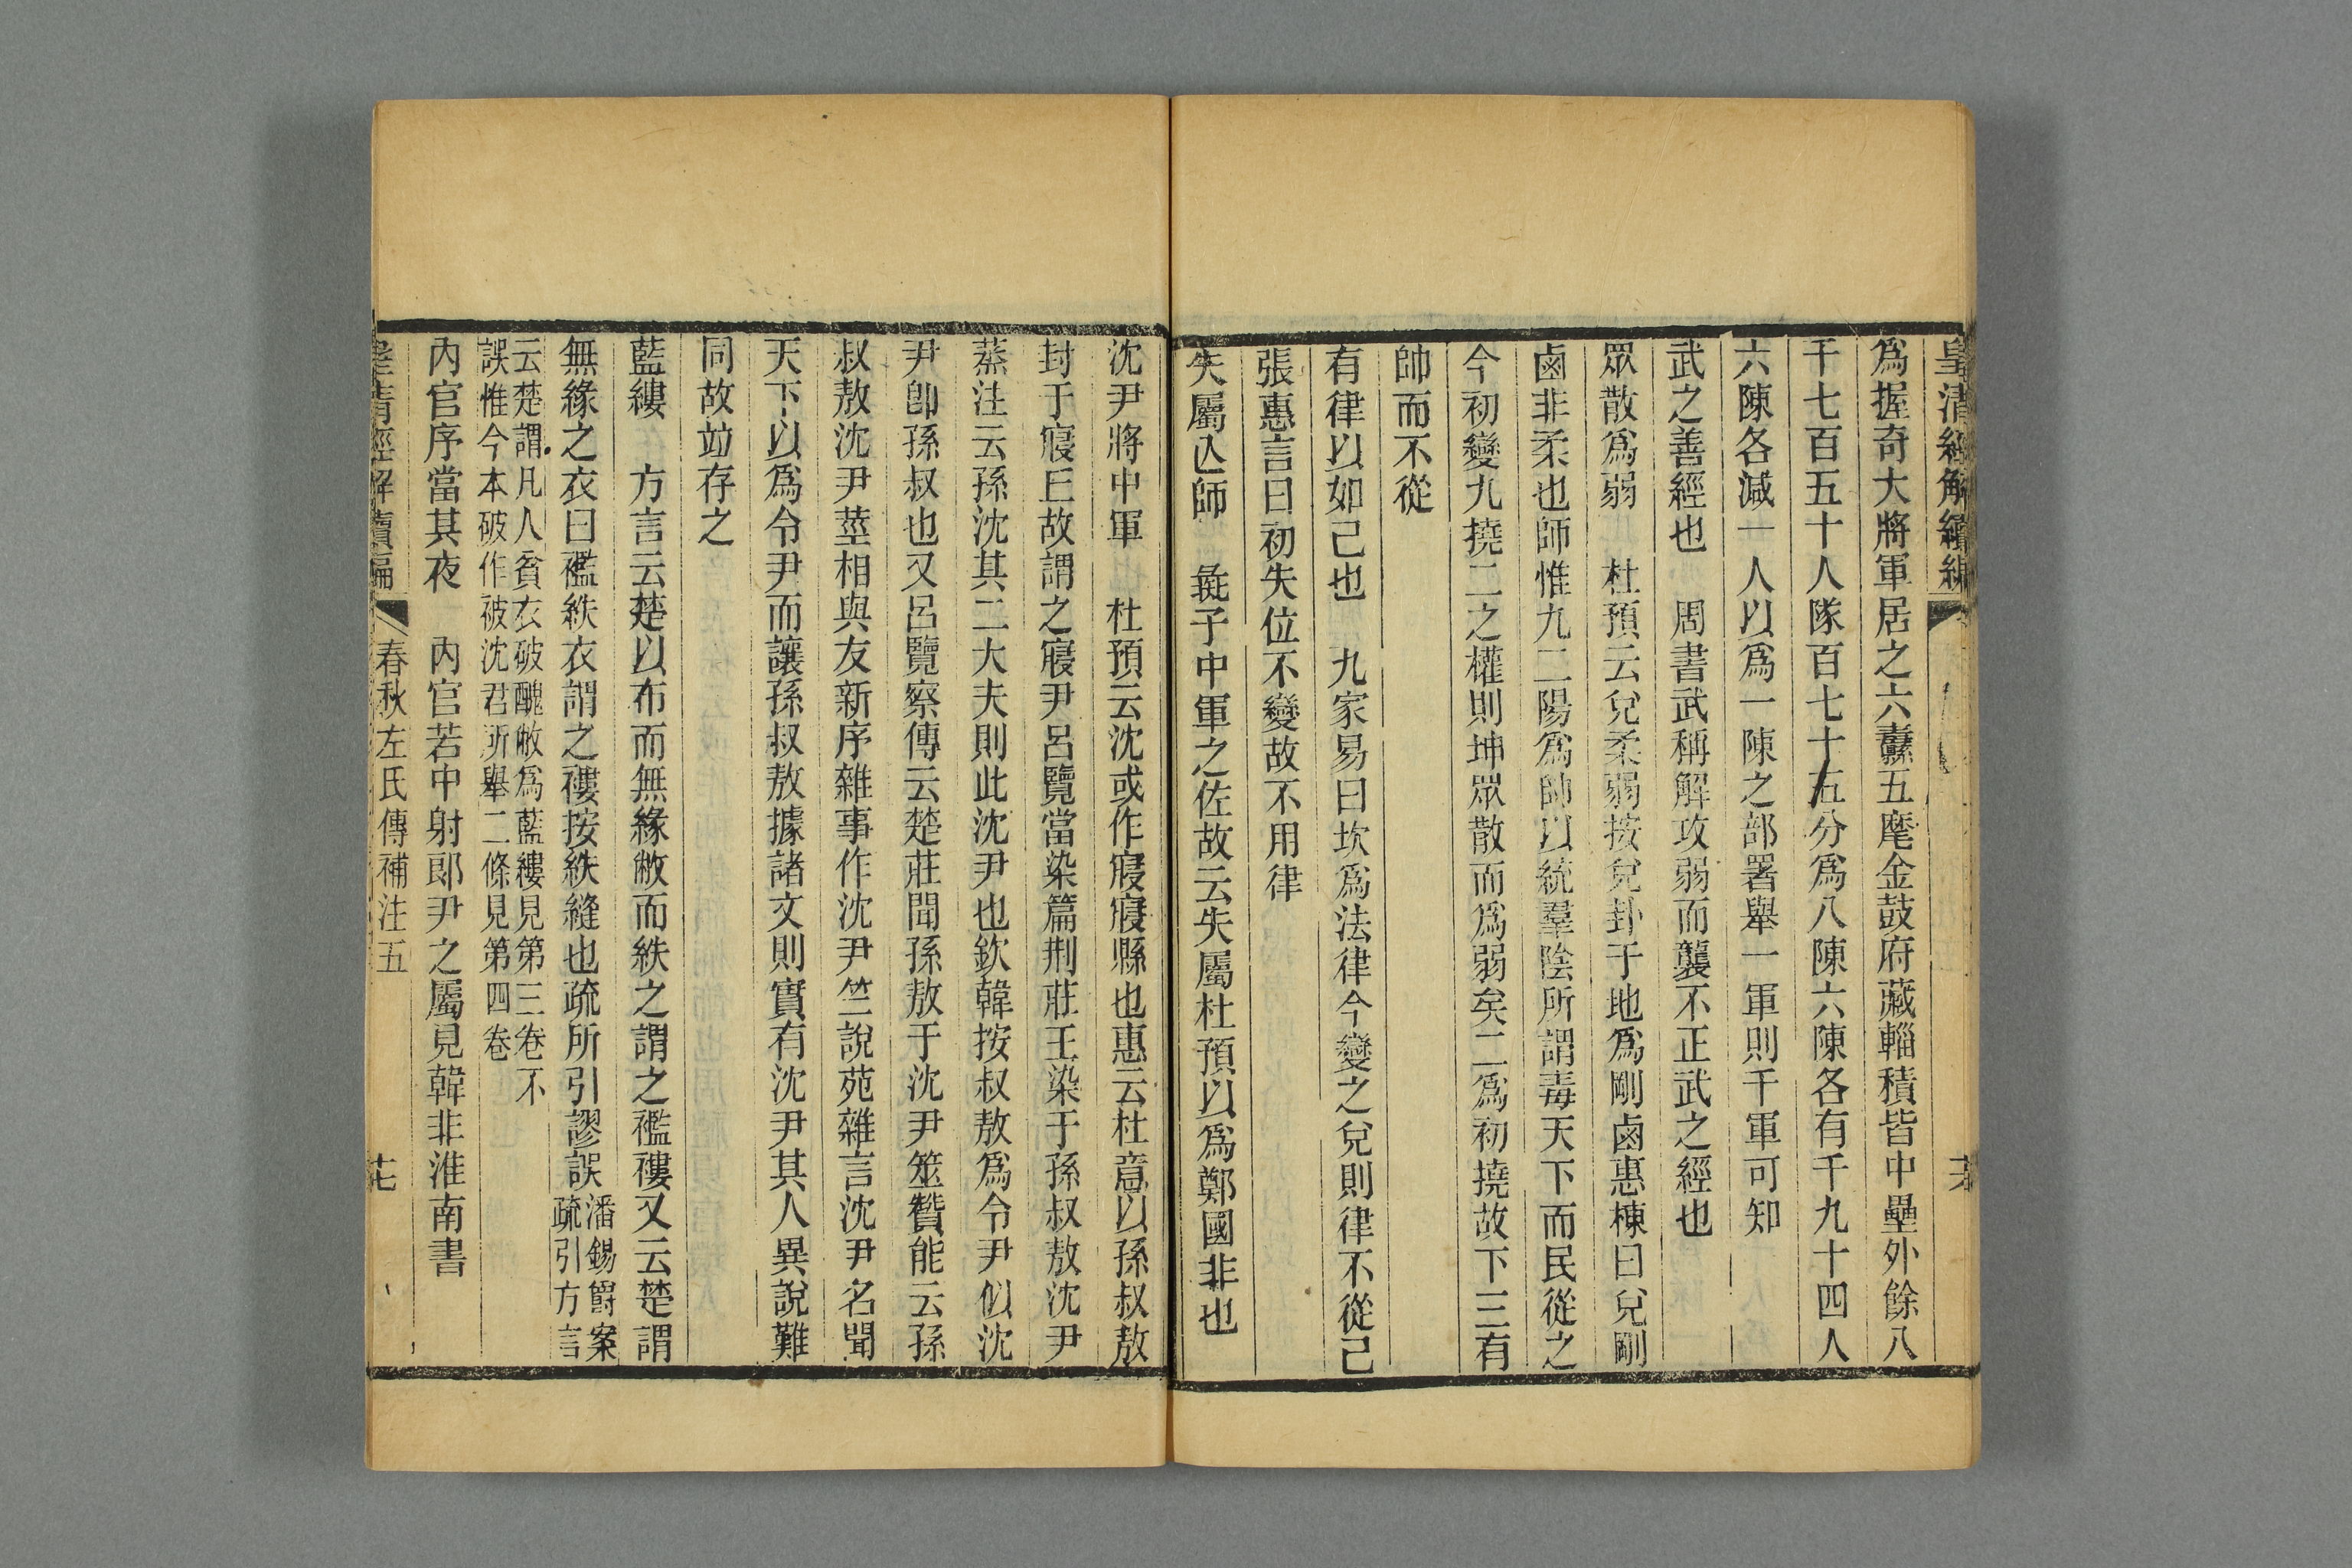 皇清經解續編
爲握奇大將軍居之六纛五麾金鼓府藏輜積皆中壘外餘八
千七百五十人隊百七十五分爲八陳六陳各有千九十四人
六陳各減一人以爲一陳之部署舉一軍則千軍可知
武之善經也　周書武稱解攻弱而襲不正武之經也
眾散爲弱　杜預云兌柔弱按兌卦于地爲剛鹵惠棟曰兌剛
鹵非柔也師惟九二陽爲帥以統羣陰所謂毒天下而民從之
今初變九撓二之權則坤眾散而爲弱矣二爲初撓故下三有
帥而不從
有律以如己也　九家易曰坎爲法律今變之兌則律不從己
張惠言曰初失位不變故不用律
失屬亾師　彘子中軍之佐故云失屬杜預以爲鄭國非也
沈尹將中軍　杜預云沈或作寢寢縣也惠云杜意以孫叔敖
封于寢丘故謂之寢尹呂覽當染篇荆莊王染于孫叔敖沈尹
蒸注云孫沈其二大夫則此沈尹也欽韓按叔敖爲令尹似沈
尹卽孫叔也又呂覽察傳云楚莊聞孫敖于沈尹筮贊能云孫
叔敖沈尹莖相與友新序雜事作沈尹竺說苑雜言沈尹名聞
天下以爲令尹而讓孫叔敖據諸文則實有沈尹其人異說難
同故竝存之
藍縷　方言云楚以布而無緣敝而紩之謂之襤褸又云楚謂
無緣之衣曰襤紩衣謂之褸按紩縫也疏所引謬誤潘錫爵案疏引方言
云楚謂凡人貧衣破醜敝爲藍縷見第三卷不
誤惟今本破作被沈君所舉二條見第四卷
內官序當其夜　內官若中射郎尹之屬見韓非淮南書
皇清經解續編　春秋左氏傳補注五　十七